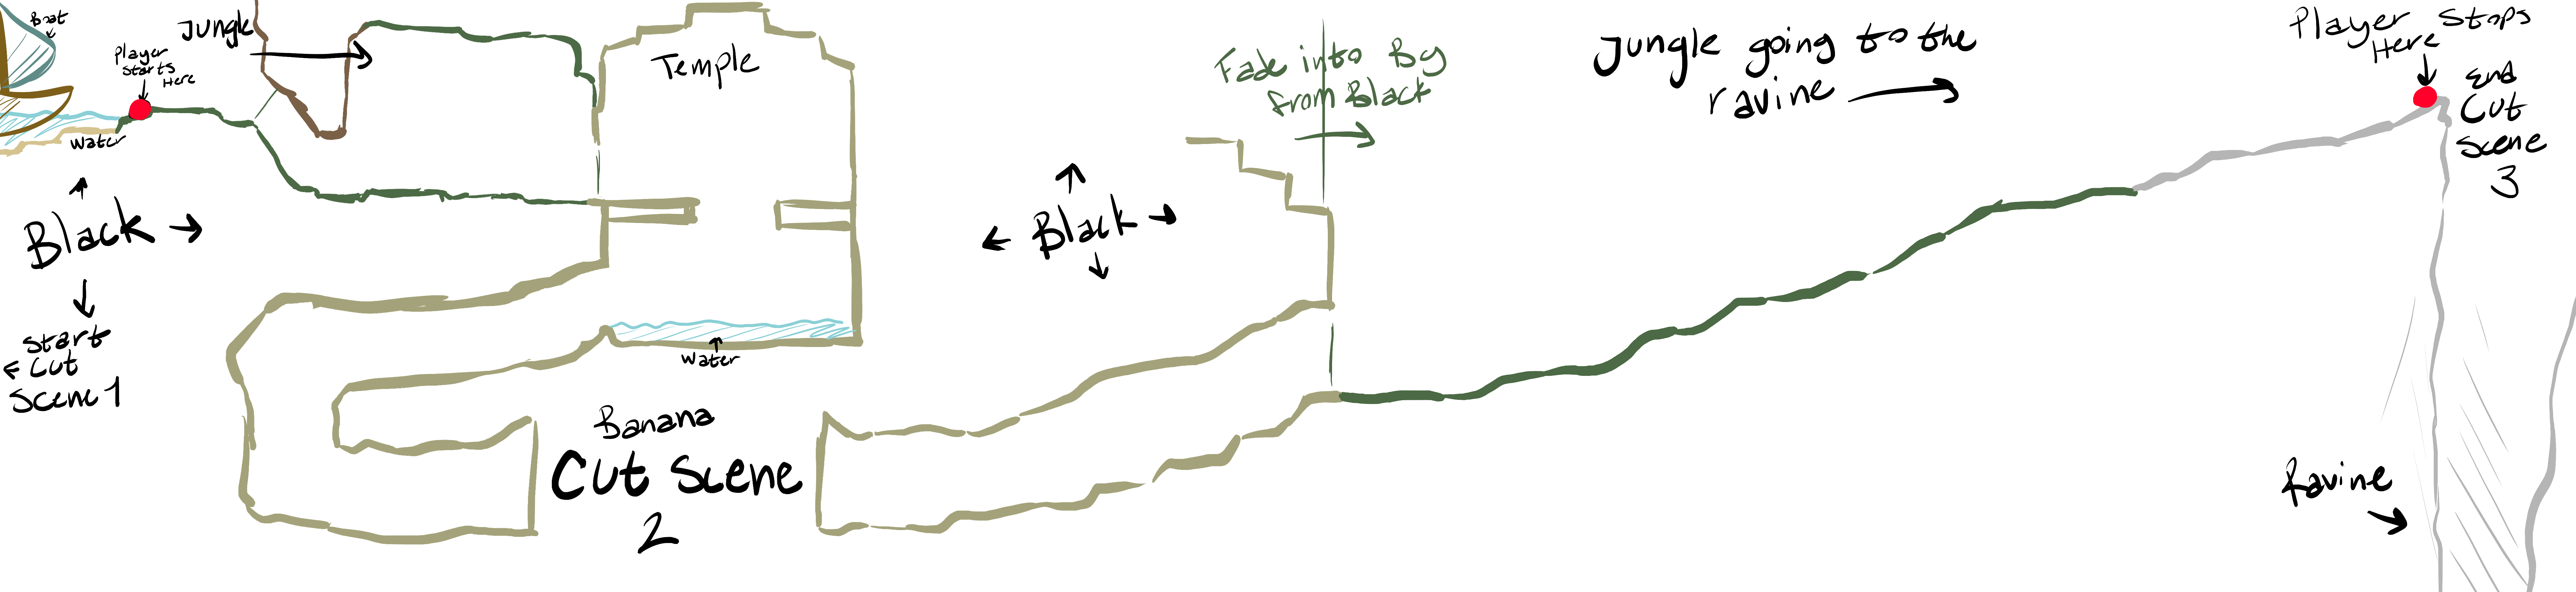 Boat
Player
starts
Here
Jungle
Water
Black
Start
Cut
Scene 1
Temple
Water
Banana
Cut Scene
2
Black
Fade into By
from Black
Jungle going to the
ravine
Player Stops
Here
End
Cut
Scene
3
Ravine